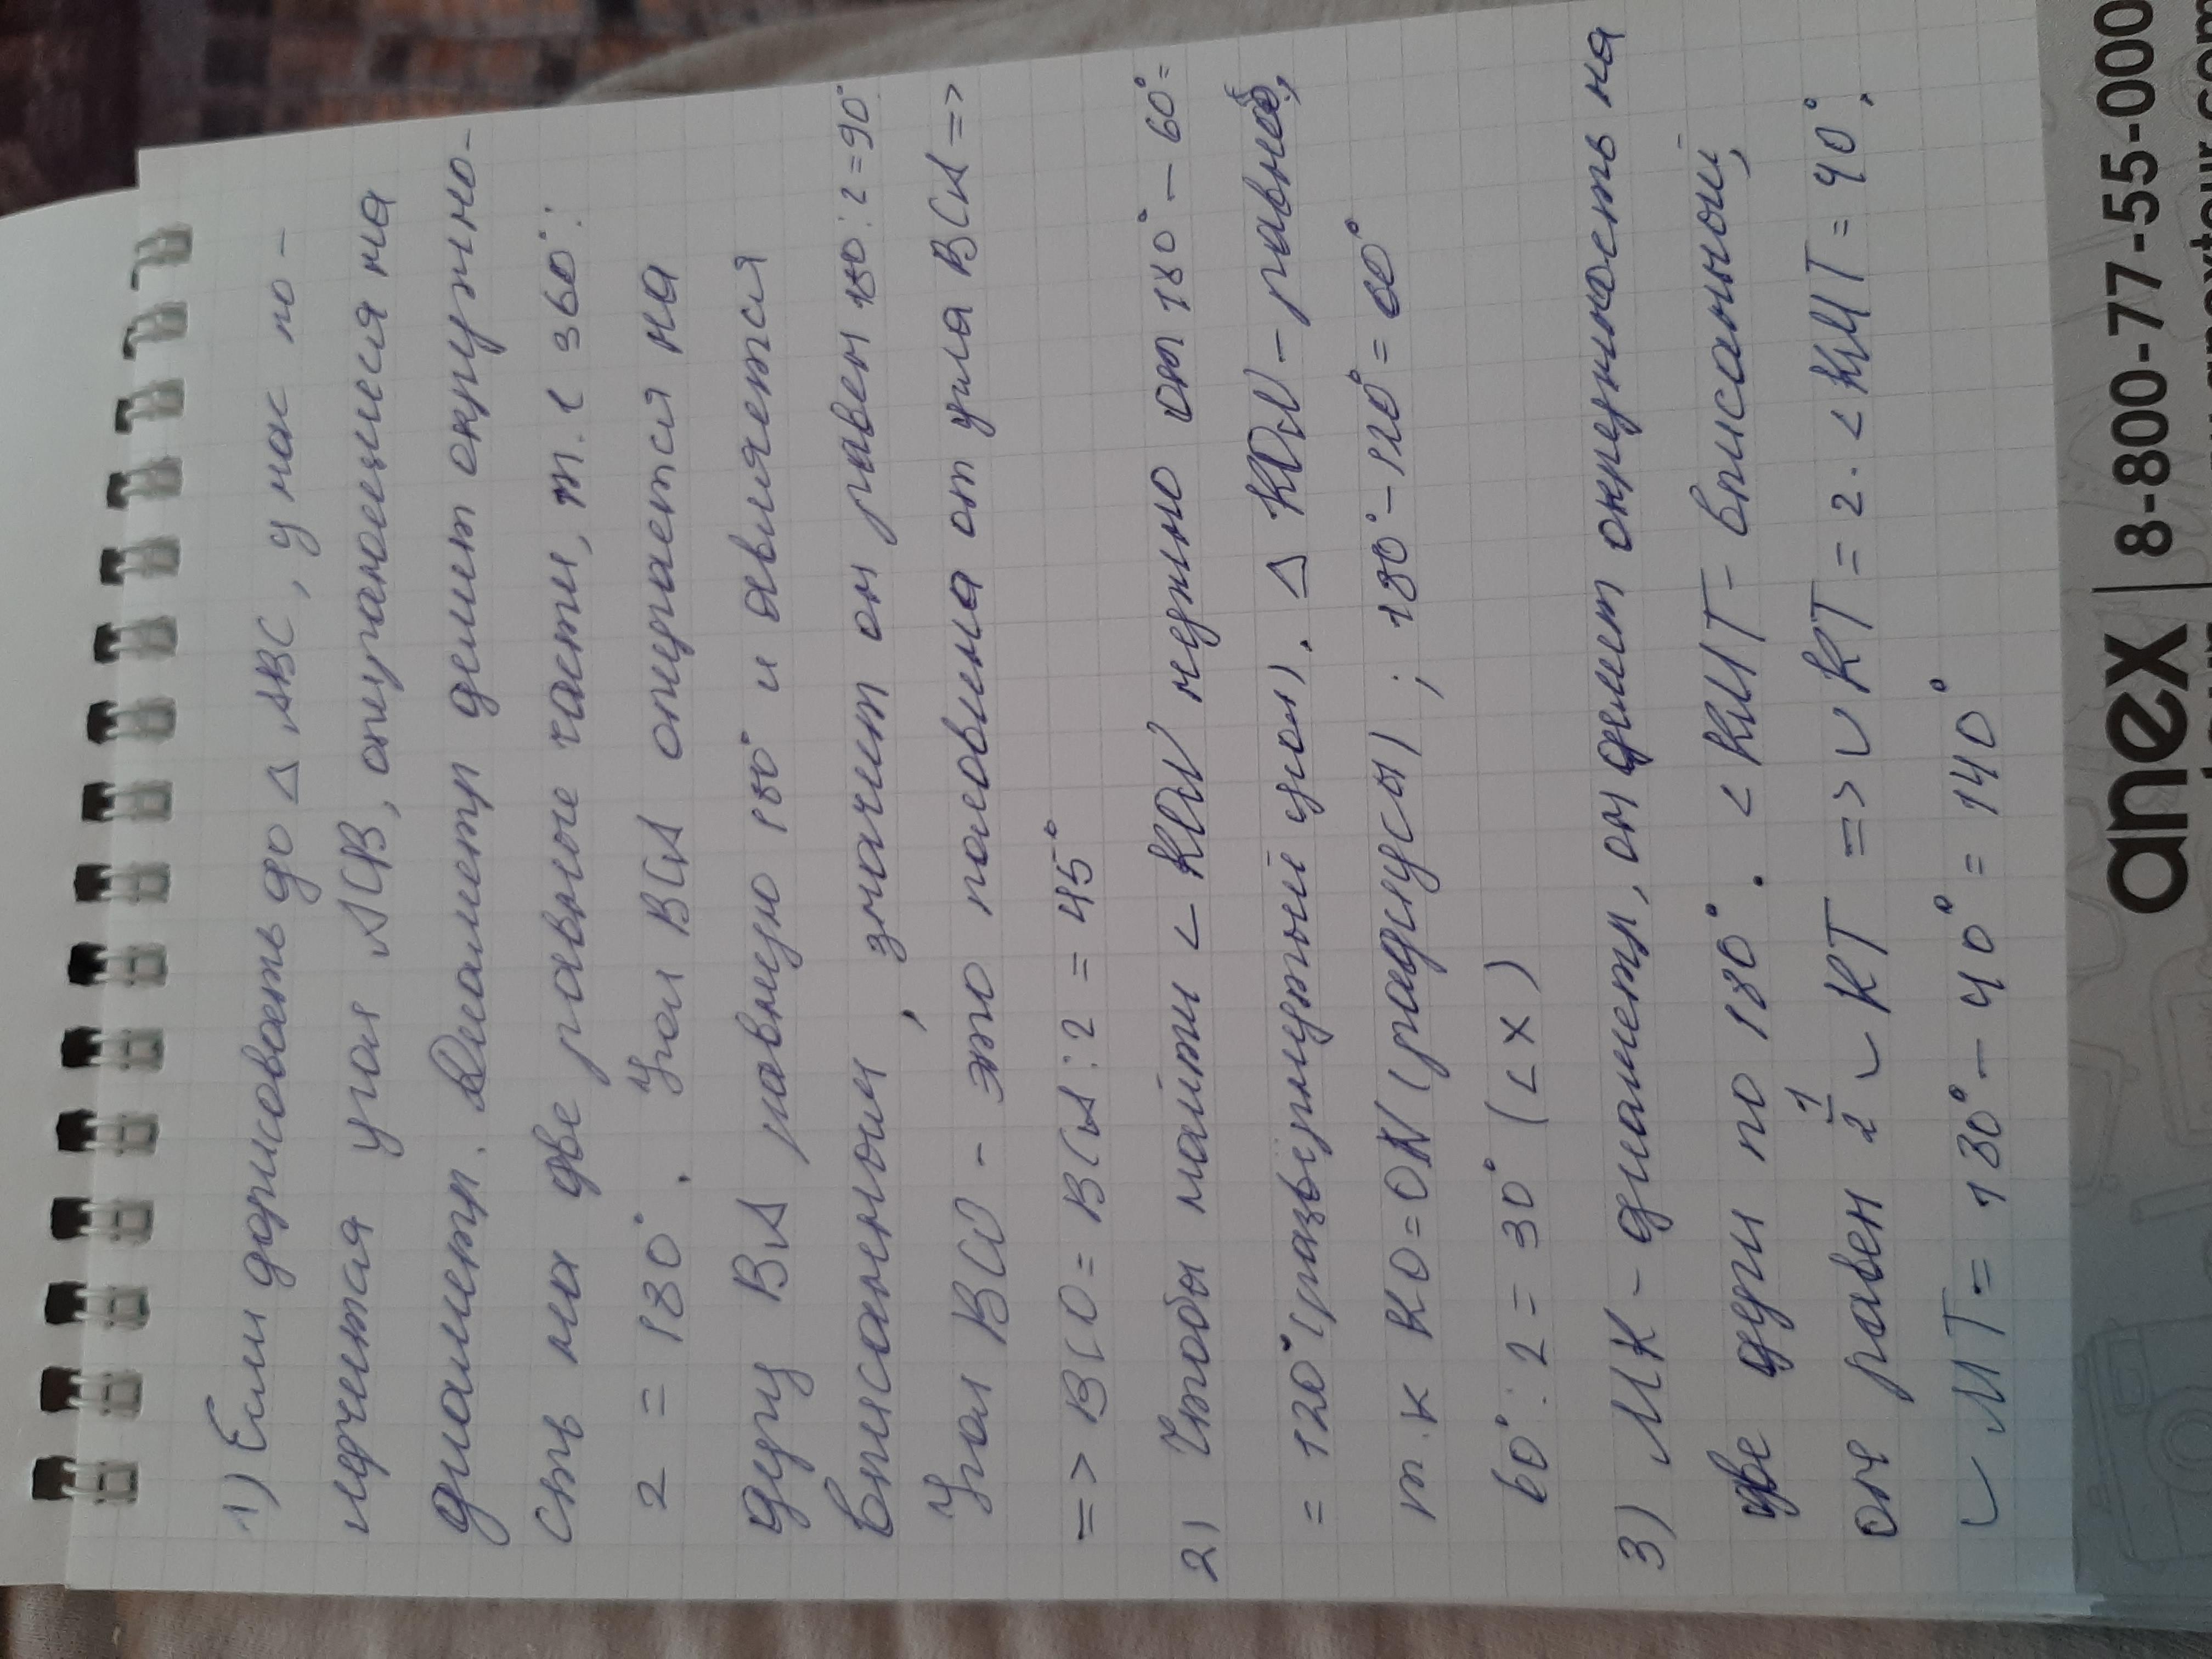 1) Если дорисовать до △ ABC, у нас по-
лучится угол ACB, опирающийся на
диаметр. Диаметр делит окружно-
сть на две равные части, т.е 360°:
2 = 180°. Угол BCA опирается на
дугу BA равную 180° и является
вписанным, значит он равен 180:2=90°
Угол BCO - это половина от угла BCA =>
=> BCO = BCA : 2 = 45°
2) Чтобы найти < KON нужно от 180° - 60° =
= 120° (развёрнутый угол). △ KON - равноб,
т.к KO = ON (радиусы) ; 180° - 120° = 60°
60° : 2 = 30° (< x)
3) MK - диаметр, он делит окружность на
две дуги по 180°. < KMT - вписанный,
он равен 1/2 ◡ KT => ◡ KT = 2 · < KMT = 40°.
◡ MT = 180° - 40° = 140°
anex | 8-800-77-55-000